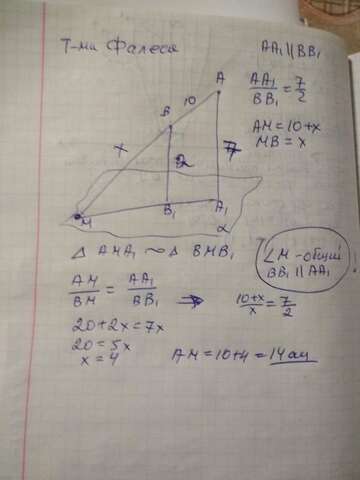 Т-ма Фалеса
AA₁ || BB₁
AA₁/BB₁ = 7/2
AM = 10+x
MB = x
A
10
B
x
2
7
M
B₁
A₁
α
Δ AMA₁ ~ Δ BMB₁
∠M - общий
BB₁ || AA₁
AM/BM = AA₁/BB₁ ⇒ 10+x/x = 7/2
20+2x = 7x
20 = 5x
x = 4
AM = 10+4 = 14 ам